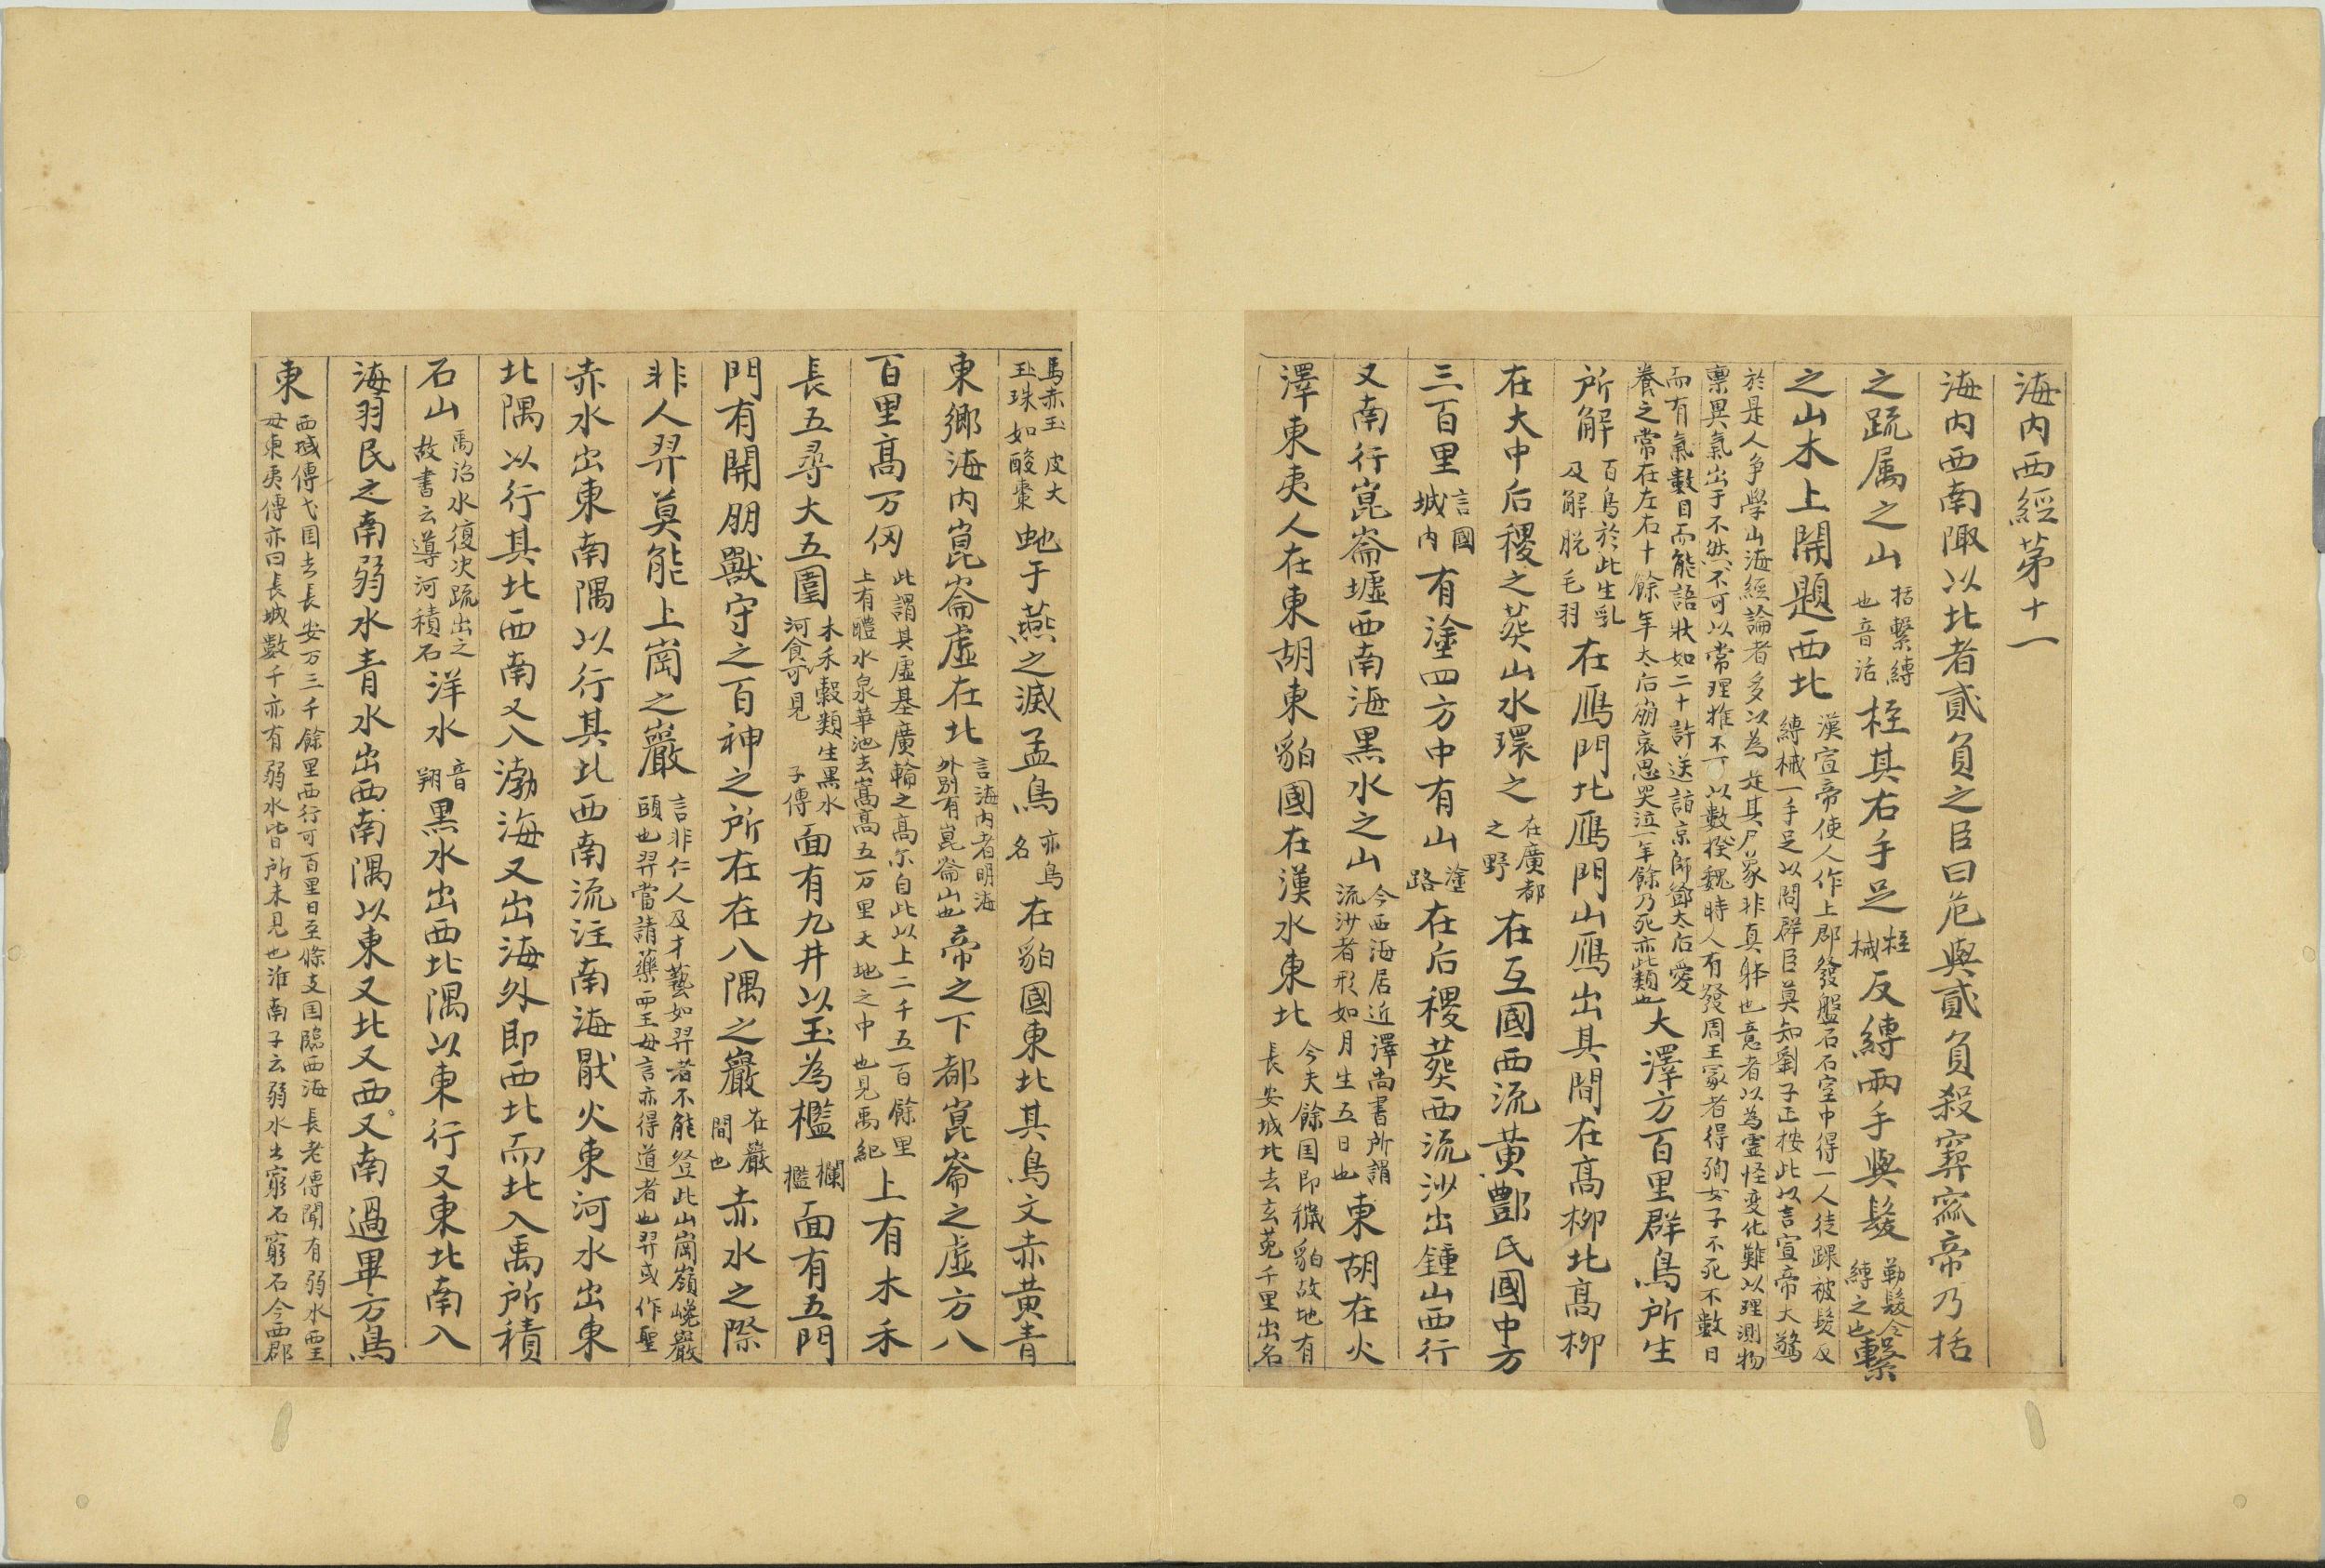 海内西經苐十一
海内西南陬以北者貳負之臣曰危與貳負殺窫窳帝乃梏
之疏属之山梏繫縛也音活桎其右手足桎械反縛兩手與髮勒髮令縛之也繫
之山木上開題西北漢宣帝使人作上郡發盤石石室中得一人徒踝被髮反縛械一手足以問群臣莫知劉子正按此以言宣帝大驚
於是人争學山海經論者多以為是其尸象非真躰也意者以為霊怪变化難以理測物稟異氣出于不然不可以常理推不可以數揆魏時人有發周王冢者得殉女子不死不數日
而有氣數目而能語狀如二十許送詣京師鄧太后愛養之常在左右十餘年太后崩哀思哭泣一年餘乃死亦此類也大澤方百里群鳥所生
所解百鳥於此生乳及解脫毛羽在鴈門北鴈門山鴈出其間在高柳北高柳
在大中后稷之葬山水環之在廣都之野在互國西流黄酆氏國中方
三百里言國城内有塗四方中有山塗路在后稷葬西流沙出鍾山西行
又南行崑崙墟西南海黒水之山今西海居近澤尚書所謂流沙者形如月生五日也東胡在火
澤東夷人在東胡東貊國在漢水東北今夫餘国即穢貊故地有長安城北去玄菟千里出名
馬赤玉皮大玉珠如酸棗虵于燕之滅孟鳥亦鳥名在貊國東北其鳥文赤黄青
東鄉海内崑崙虛在北言海内者明海外别有崑崙山也帝之下都崑崙之虛方八
百里高万仞此謂其虛基廣輪之高尔自此以上二千五百餘里上有醴水泉華池去嵩高五万里天地之中也見禹紀上有木禾
長五尋大五圍木禾穀類生黒水河食可見子傳面有九井以玉為檻欄檻面有五門
門有開朋獸守之百神之所在在八隅之巖在巖間也赤水之際
非人羿莫能上崗之巖言非仁人及才藝如羿者不能登此山崗嶺巉巖頭也羿當請藥西王母言亦得道者也羿或作聖
赤水出東南隅以行其北西南流注南海猒火東河水出東
北隅以行其北西南又入渤海又出海外即西北而北入禹所積
石山禹治水復次疏出之故書云導河積石洋水音翔黒水出西北隅以東行又東北南入
海羽民之南弱水青水出西南隅以東又北又西又南過畢方鳥
東西域傳弋国去長安万三千餘里西行可百里日至條支国臨西海長老傳聞有弱水西王母東夷傳亦曰長城數千亦有弱水皆所未見也淮南子云弱水出窮石窮石今西郡